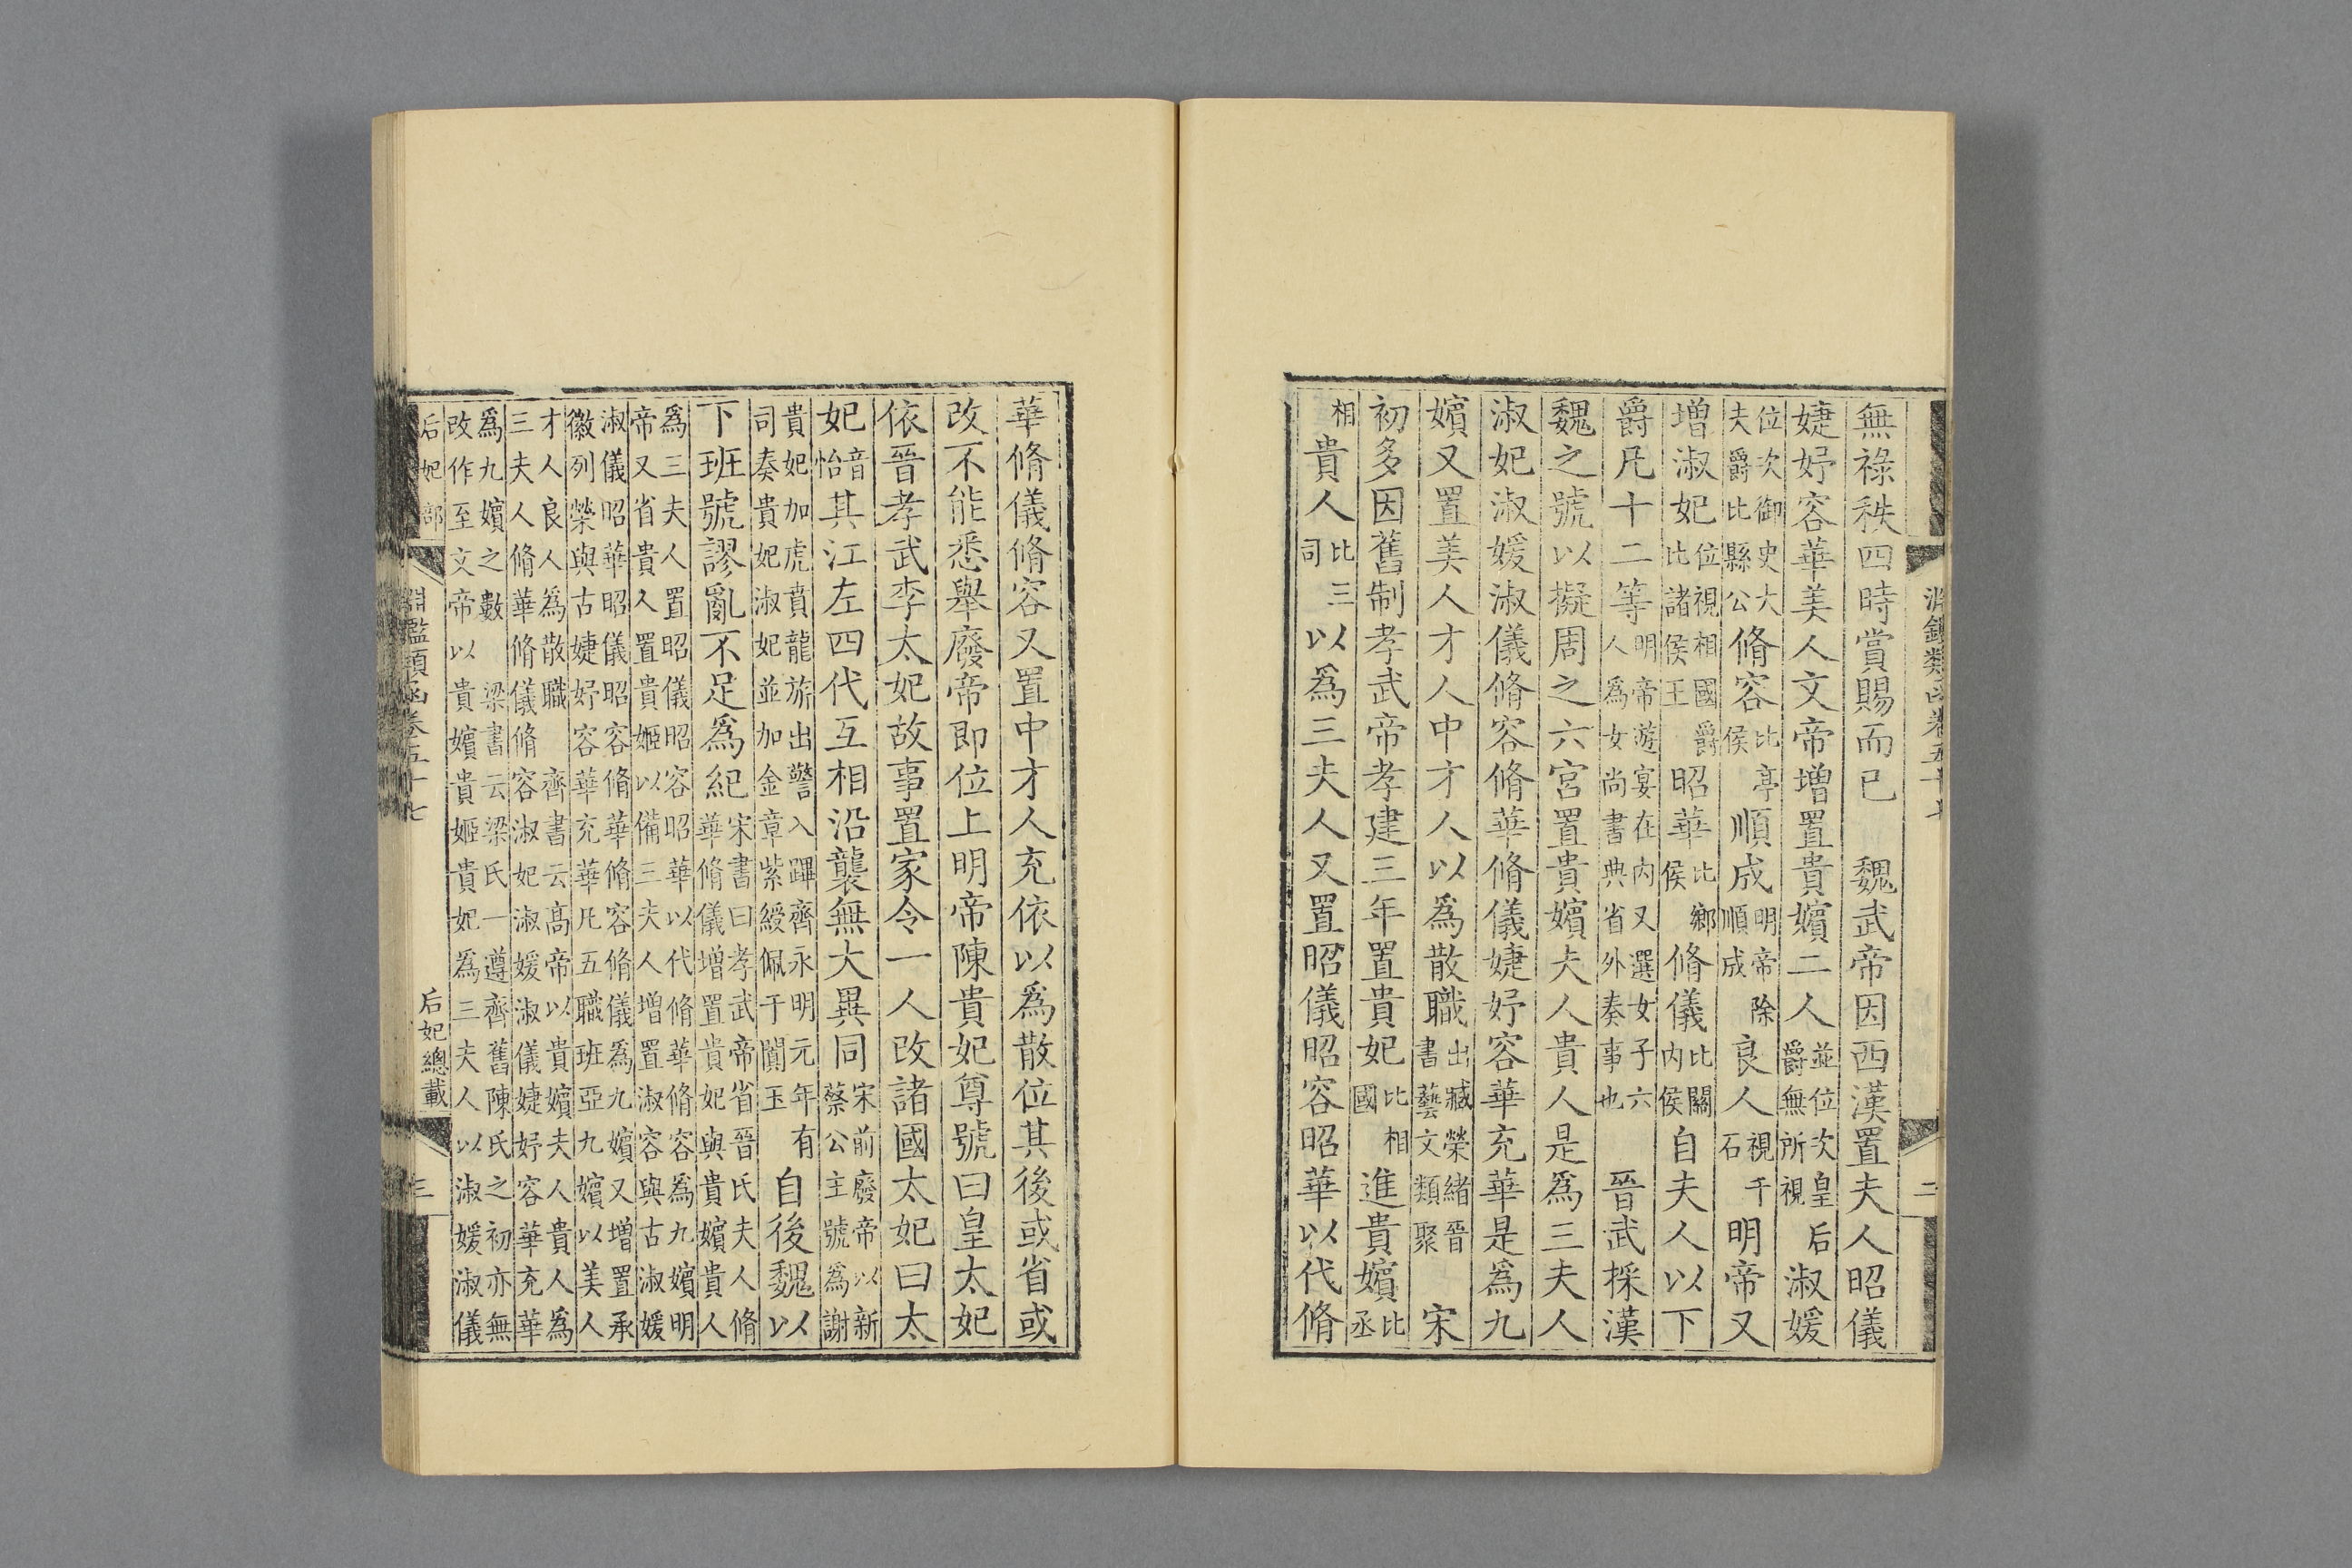 淵鑑類函卷五十七 二
無祿秩四時賞賜而已　魏武帝因西漢置夫人昭儀
婕妤容華美人文帝增置貴嬪二人並位次皇后爵無所視淑媛
位次御史大夫爵比縣公脩容比亭侯順成明帝除順成良人視千石明帝又
增淑妃位視相國爵比諸侯王昭華比鄉侯脩儀比關内侯自夫人以下
爵凡十二等明帝遊宴在内又選女子六人爲女尚書典省外奏事也　晉武採漢
魏之號以擬周之六宮置貴嬪夫人貴人是爲三夫人
淑妃淑媛淑儀脩容脩華脩儀婕妤容華充華是爲九
嬪又置美人才人中才人以爲散職出臧榮緒晉書藝文類聚　宋
初多因舊制孝武帝孝建三年置貴妃比相國進貴嬪比丞
相貴人比三司以爲三夫人又置昭儀昭容昭華以代脩
華脩儀脩容又置中才人充依以爲散位其後或省或
改不能悉舉廢帝即位上明帝陳貴妃尊號曰皇太妃
依晉孝武李太妃故事置家令一人改諸國太妃曰太
妃音怡其江左四代互相沿襲無大異同宋前廢帝以新蔡公主號爲謝
貴妃加虎賁龍旂出警入蹕齊永明元年有司奏貴妃淑妃並加金章紫綬佩于闐玉自後魏以
下班號謬亂不足爲紀宋書曰孝武帝省晉氏夫人脩華脩儀增置貴妃與貴嬪貴人
爲三夫人置昭儀昭容昭華以代脩華脩容爲九嬪明帝又省貴人置貴姬以備三夫人增置淑容與古淑媛
淑儀昭華昭儀昭容脩華脩容脩儀爲九嬪又增置承徽列榮與古婕妤容華充華凡五職班亞九嬪以美人
才人良人爲散職　齊書云高帝以貴嬪夫人貴人爲三夫人脩華脩儀脩容淑妃淑媛淑儀婕妤容華充華
爲九嬪之數　梁書云梁氏一遵齊舊陳氏之初亦無改作至文帝以貴嬪貴姬貴妃爲三夫人以淑媛淑儀
后妃部 淵鑑類函卷五十七 后妃總載 三